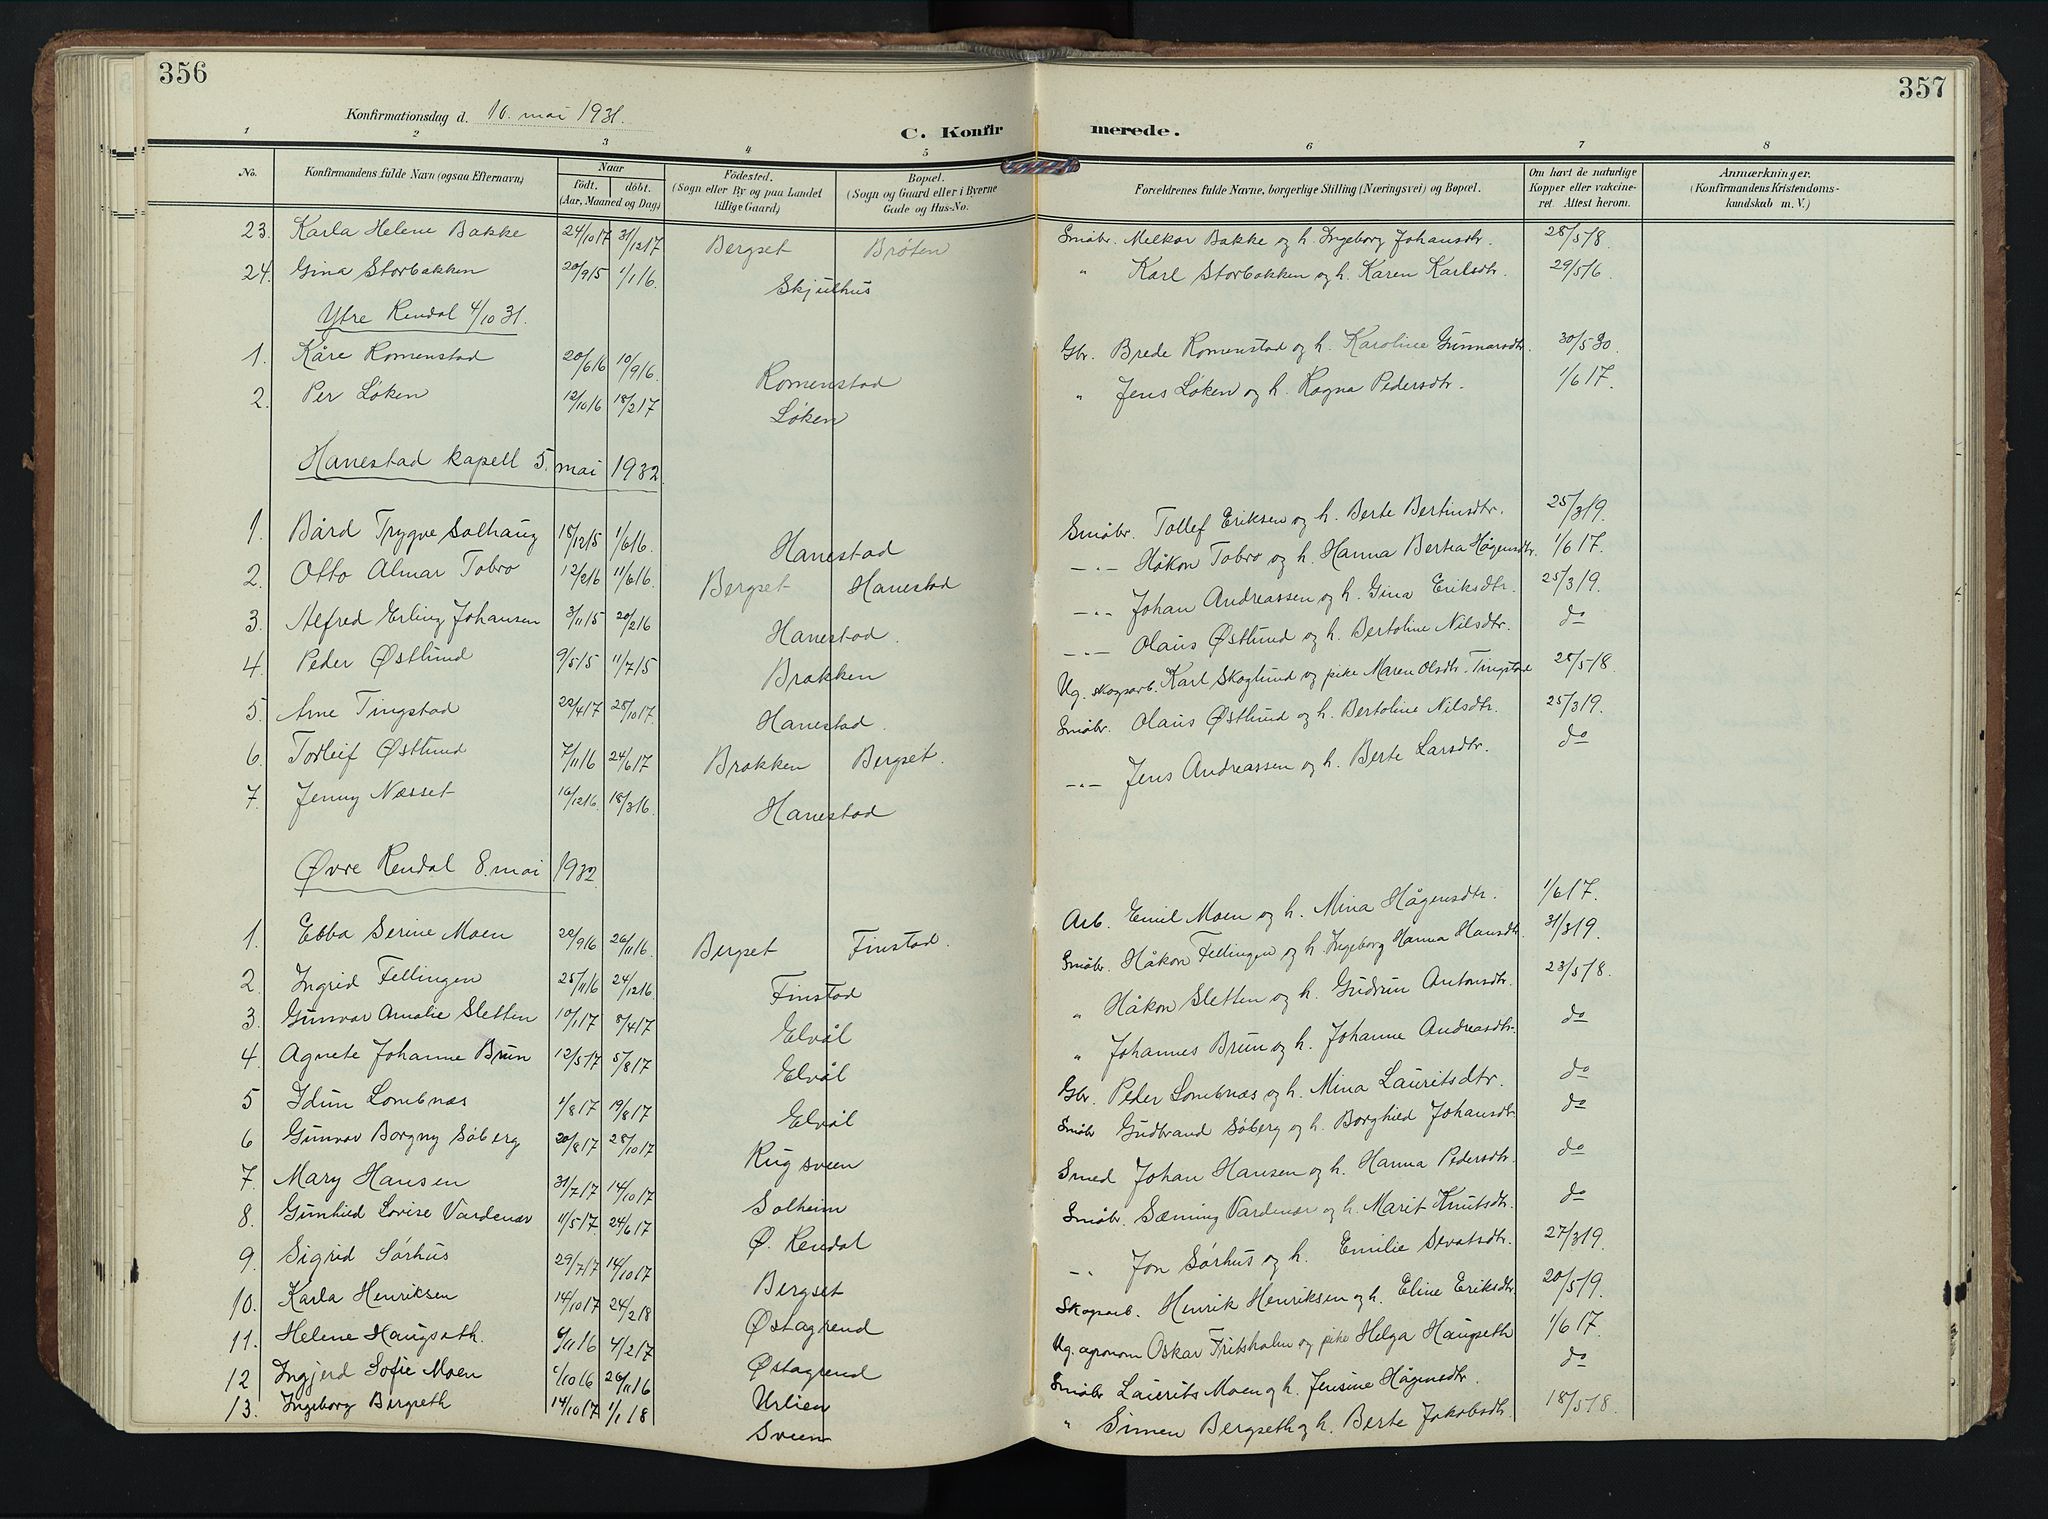 356
357
Konfirmationsdag d. 10. mai 1931.
C. Konfirmerede.
1 2 3 4 5 6 7 8
No.
Konfirmandens fulde Navn (ogsaa Efternavn)
Naar
født. døbt.
(Aar, Maaned og Dag)
Fødested.
(Sogn eller By og paa Landet
tillige Gaard)
Bopæl.
(Sogn og Gaard eller i Byerne
Gade og Hus-No.
Forældrenes fulde Navne, borgerlige Stilling (Næringsvei) og Bopæl.
Om havt de naturlige
Kopper eller vakcine-
ret. Attest herom.
Anmærkninger.
(Konfirmandens Kristendoms-
kundskab m. V.)
23. Karla Helene Bakke 24/10 17 31/12 17 Bergset Brøten Småbr. Melkor Bakke og h. Ingeborg Johansdtr. 28/5 18.
24. Gina Storbakken 20/9 15 1/1 16. Skjulhus " Karl Storbakken og h. Karen Karlsdtr. 29/5 16.
Ytre Rendal 4/10 31.
1. Kåre Romenstad 20/6 16 10/9 16. Romenstad Gbr. Brede Romenstad og h. Karoline Gunnarsdtr. 30/5 30.
2. Per Løken 12/10 16 18/2 17 Løken " Jens Løken og h. Ragna Pedersdtr. 1/6 17.
Hanestad kapell 5. mai 1932
1. Bård Trygve Solhaug 18/12 15 1/6 16. Hanestad Småbr. Tollef Eriksen og h. Berte Bertinsdtr. 25/3 19.
2. Otto Almar Tobro 12/2 16 11/6 16. Bergset Hanestad -"- Håkon Tobro og h. Hanna Bertea Hågensdtr. 1/6 17.
3. Alfred Erling Johansen 3/11 15 20/2 16 Hanestad. -"- Johan Andreassen og h. Gina Eriksdtr. 25/3 19.
4. Peder Østlund 9/5 15 11/7 15 Brakken -"- Olaus Østlund og h. Bertoline Nilsdtr. do
5. Arne Tingstad 22/4 17 28/10 17. Hanestad. Ug. skogsarb. Karl Skoglund og pike Maren Olsdtr. Tingstad 28/5 18.
6. Torleif Østlund 7/11 16 24/6 17 Brakken Bergset. Småbr. Olaus Østlund og h. Bertoline Nilsdtr. 25/3 19.
7. Jenny Næsset 16/12 16. 18/3 16. Hanestad -"- Jens Andreassen og h. Berte Larsdtr. do
Øvre Rendal 8. mai 1932
1. Ebba Serine Moen 22/9 16 26/11 16. Bergset Finstad. Arb. Emil Moen og h. Mina Hågensdtr. 1/6 17.
2. Ingrid Fellingen 25/11 16 24/12 16. Finstad Småbr. Håkon Fellingen og h. Ingeborg Hanna Hansdtr. 31/3 19.
3. Gunvor Amalie Sletten 10/1 17 8/4 17 Elvål " Håkon Sletten og h. Gudrun Antonsdtr. 23/5 18.
4. Agnete Johanne Brun 12/5 17 5/8 17 Elvål " Johannes Brun og h. Johanne Andreasdtr. do
5 Idun Lombnæs 1/8 17 19/8 17 Elvål Gbr. Peder Lombnæs og h. Mina Lauritsdtr. do
6 Gunvor Borgny Søberg 20/8 17 28/10 17 Rugsveen Småbr Gudbrand Søberg og h. Borghild Johansdtr. do
7. Mary Hansen 31/7 17 14/10 17 Solheim Smed Johan Hansen og h. Hanna Pedersdtr. do
8. Gunhild Lovise Vardenær 11/5 17. 24/6 17 Ø. Rendal Småbr. Sæming Vardenær og h. Marit Knutsdtr. do
9. Sigrid Sørhus 29/7 17 14/10 17 Bergset -"- Jon Sørhus og h. Emilie Sivatsdtr. 27/3 19.
10. Karla Henriksen 14/10 17 24/2 18 Østagrend Skogsarb. Henrik Henriksen og h. Eline Eriksdtr. 20/5 19.
11. Helene Haugseth. 6/11 16 4/2 17 Østagrend Ug. agronom Oskar Fritsholm og pike Helga Haugseth 1/6 17.
12 Ingjerd Sofie Moen 6/10 16 26/11 16 Urlien Småbr Laurits Moen og h. Jensine Hågensdtr. do
13. Ingeborg Bergseth 14/10 17 1/1 18 Sveen " Simen Bergseth og h. Berte Jakobsdtr. 18/5 18.